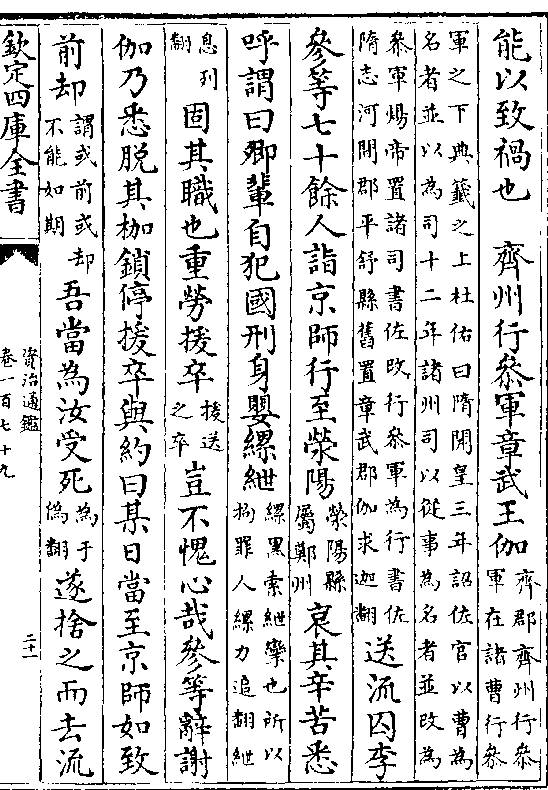 能以致禍也　齊州行參軍章武王伽齊郡齊州行參軍在諸曹行參
軍之下典籤之上杜佑曰隋開皇三年詔佐官以曹為
名者並以為司十二年諸州司以從事為名者並改為
參軍煬帝置諸司書佐改行參軍為行書佐
隋志河間郡平舒縣舊置章武郡伽求迦翻送流囚李
參等七十餘人詣京師行至滎陽滎陽縣屬鄭州哀其辛苦悉
呼謂曰卿輩自犯國刑身嬰縲紲縲黑索紲孿也所以拘罪人縲力追翻紲
息列翻固其職也重勞援卒援送之卒豈不愧心哉參等辭謝
伽乃悉脫其枷鎖停援卒與約曰某日當至京師如致
前却謂或前或却不能如期吾當為汝受死為于偽翻遂捨之而去流
欽定四庫全書
資治通鑑
卷一百七十九
二十一